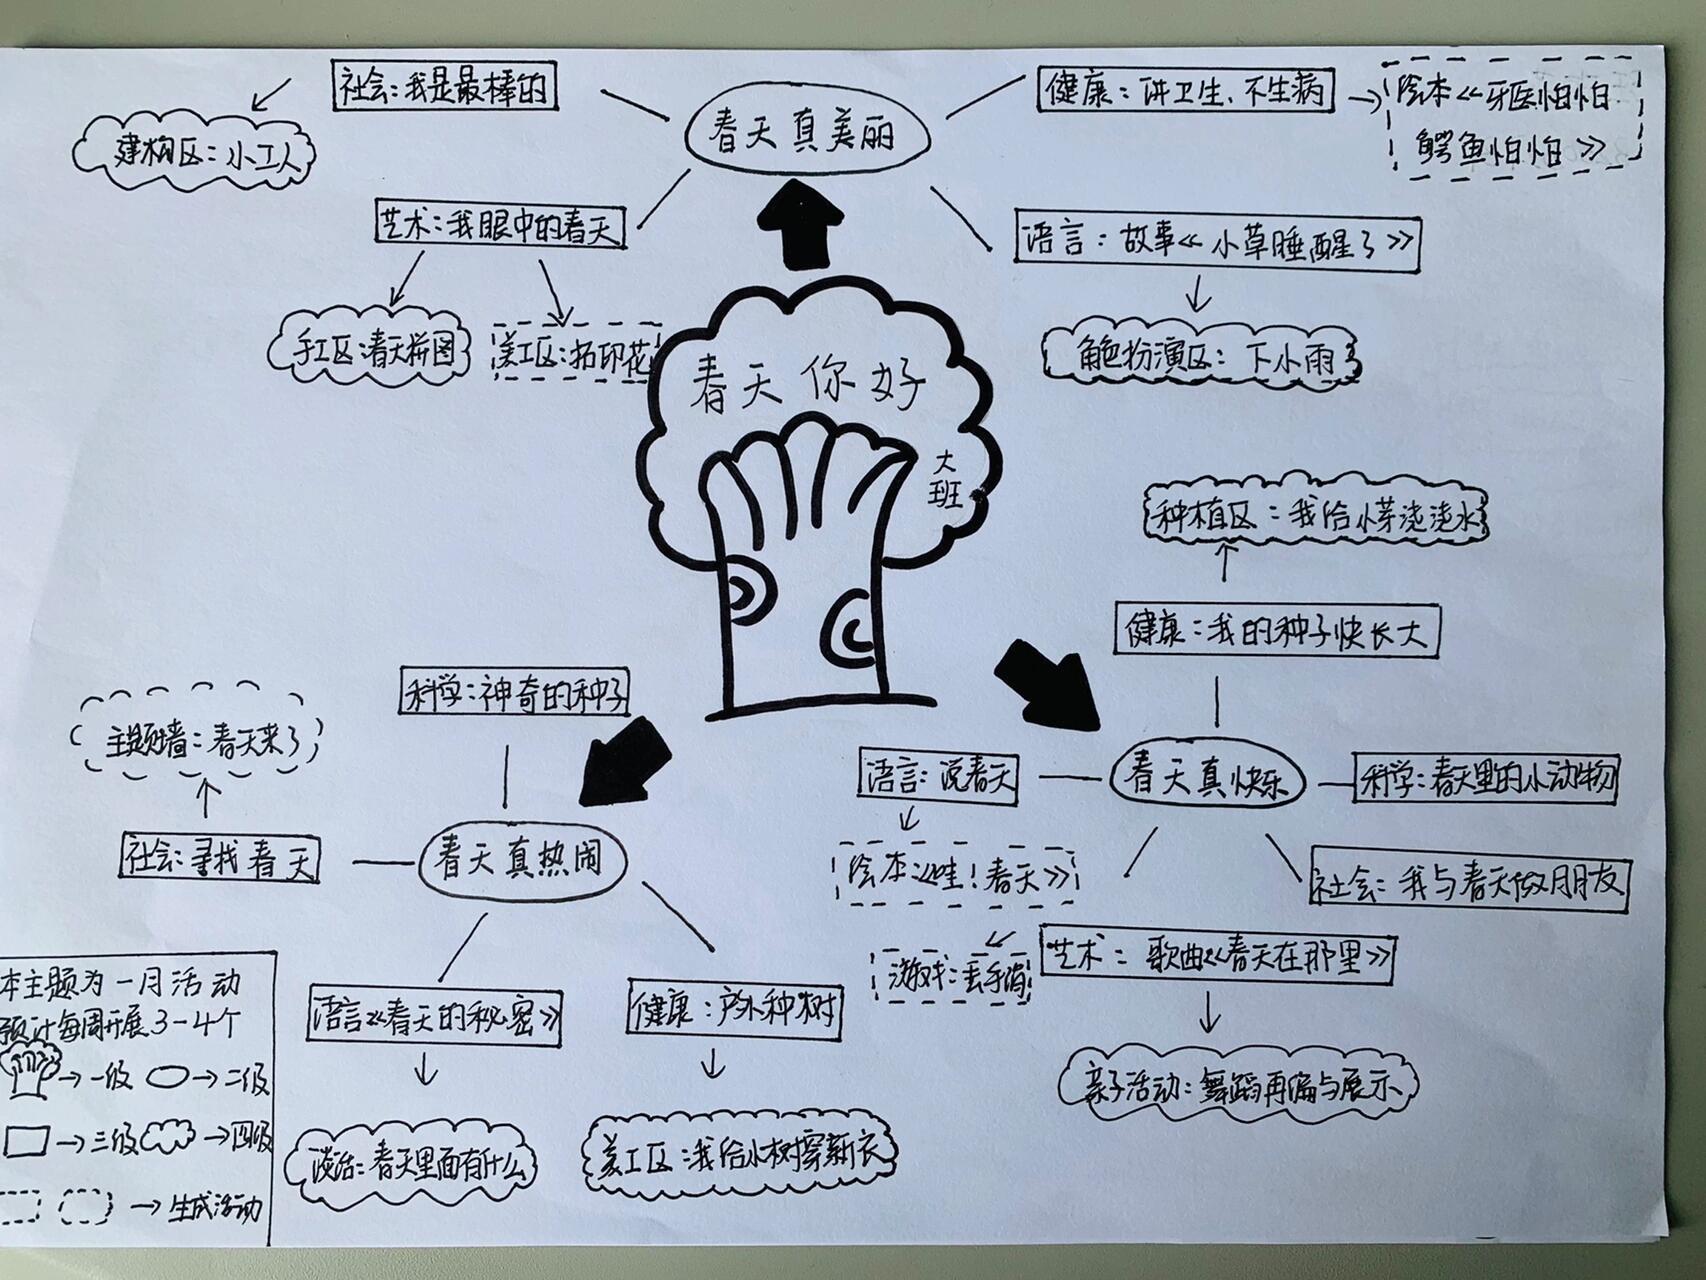 社会:我是最棒的
春天真美丽
健康:讲卫生、不生病
绘本《牙医怕怕
鳄鱼怕怕》
建构区:小工人
艺术:我眼中的春天
语言:故事《小草睡醒了》
手工区:春天拼图
美工区:拓印花
角色扮演区:下小雨
春天你好
大
班
种植区:我给小芽浇浇水
健康:我的种子快长大
科学:神奇的种子
主题墙:春天来了
语言:说春天
春天真快乐
科学:春天里的小动物
社会:寻找春天
春天真热闹
绘本:《哇!春天》
社会:我与春天做朋友
游戏:丢手绢
艺术:歌曲《春天在那里》
语言《春天的秘密》
健康:户外种树
亲子活动:舞蹈再编与展示
谈话:春天里面有什么
美工区:我给小树穿新衣
本主题为一月活动
预计每周开展3-4个
→一级 →二级
→三级 →四级
→生成活动